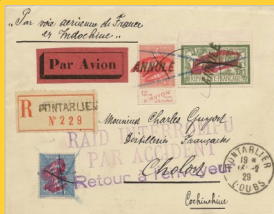 "Par voie aérienne de France
en Indochine"
ANNULÉ
Par Avion
R PONTARLIER
N° 229
RAID INTERROMPU
PAR ACCIDENT
Retour à l'envoyeur
Monsieur Charles
Distillerie Française
Cholon
Cochinchine
PONTARLIER
19
29
DOUBS